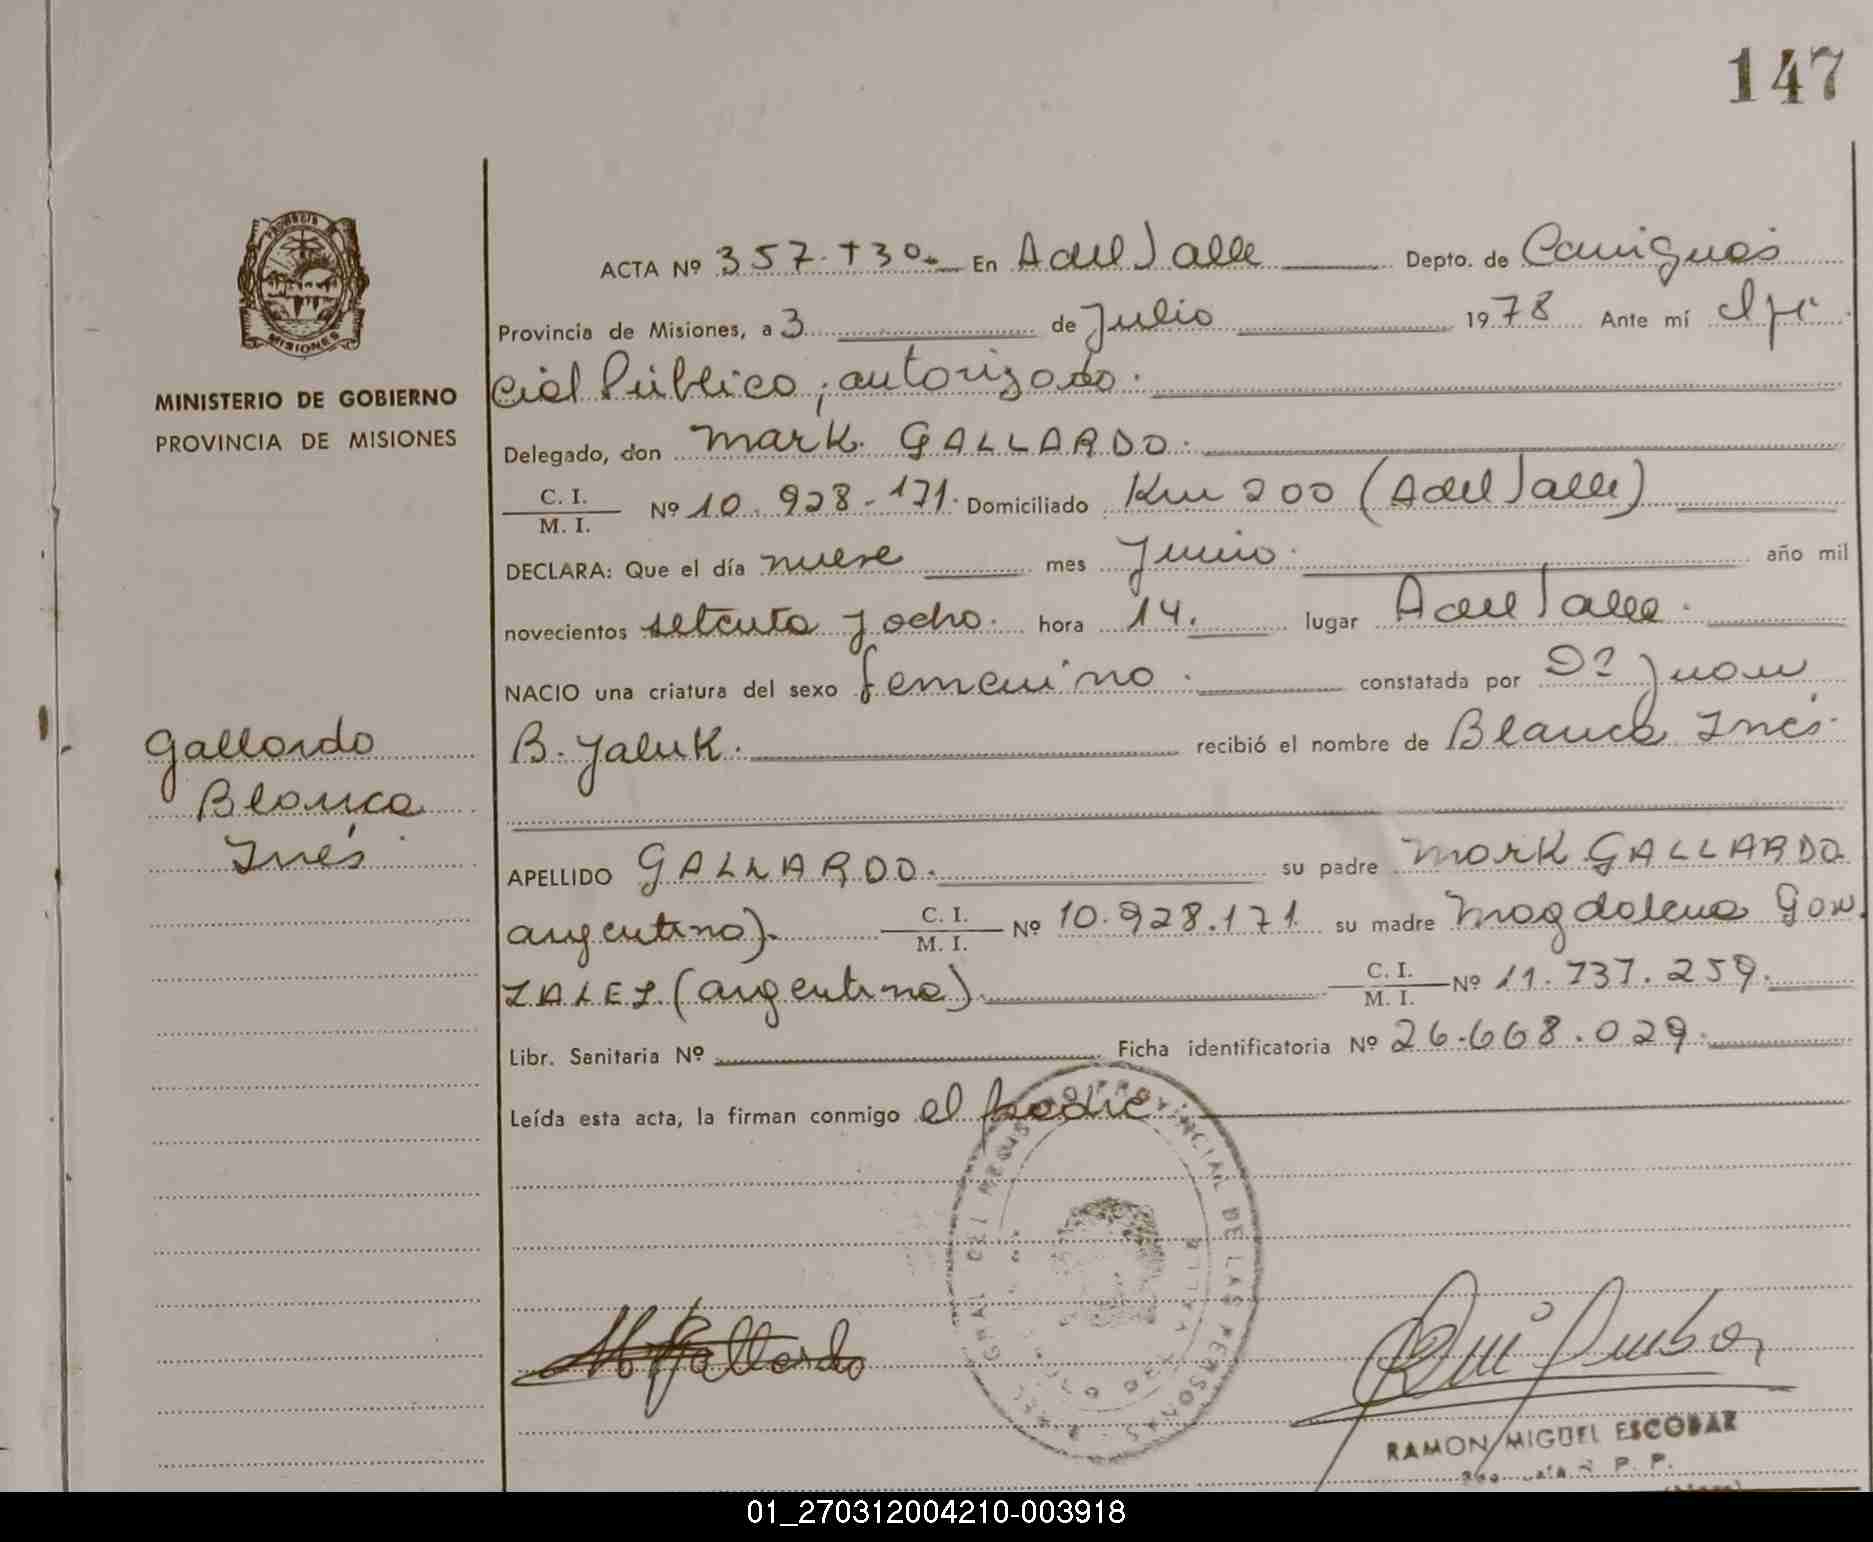 147
PROVINCIA
MISIONES
MINISTERIO DE GOBIERNO
PROVINCIA DE MISIONES
ACTA Nº 357. T 30. En A del Valle Depto. de Cainguás
Provincia de Misiones, a 3 de Julio 1978 Ante mí Ofi
cial Público, autorizado.
Delegado, don Mark. GALLARDO.
C. I.
M. I. Nº 10.928.171. Domiciliado Km 200 (A del Valle)
DECLARA: Que el día nueve mes Junio. año mil
novecientos setenta y ocho. hora 14. lugar A del Valle.
NACIO una criatura del sexo femenino. constatada por Dº Juan
B. Yaluk. recibió el nombre de Blanca Inés.
Gallardo
Blanca
Inés.
APELLIDO GALLARDO. su padre Mark GALLARDO
argentino). C. I.
M. I. Nº 10.928.171. su madre Magdalena Gon
ZALEZ (argentina). C. I.
M. I. Nº 11.737.259.
Libr. Sanitaria Nº Ficha identificatoria Nº 26.668.029.
Leída esta acta, la firman conmigo el padre
PROVINCIAL DE LAS PERSONAS
M Gallardo
RAMON MIGUEL ESCOBAR
01_270312004210-003918